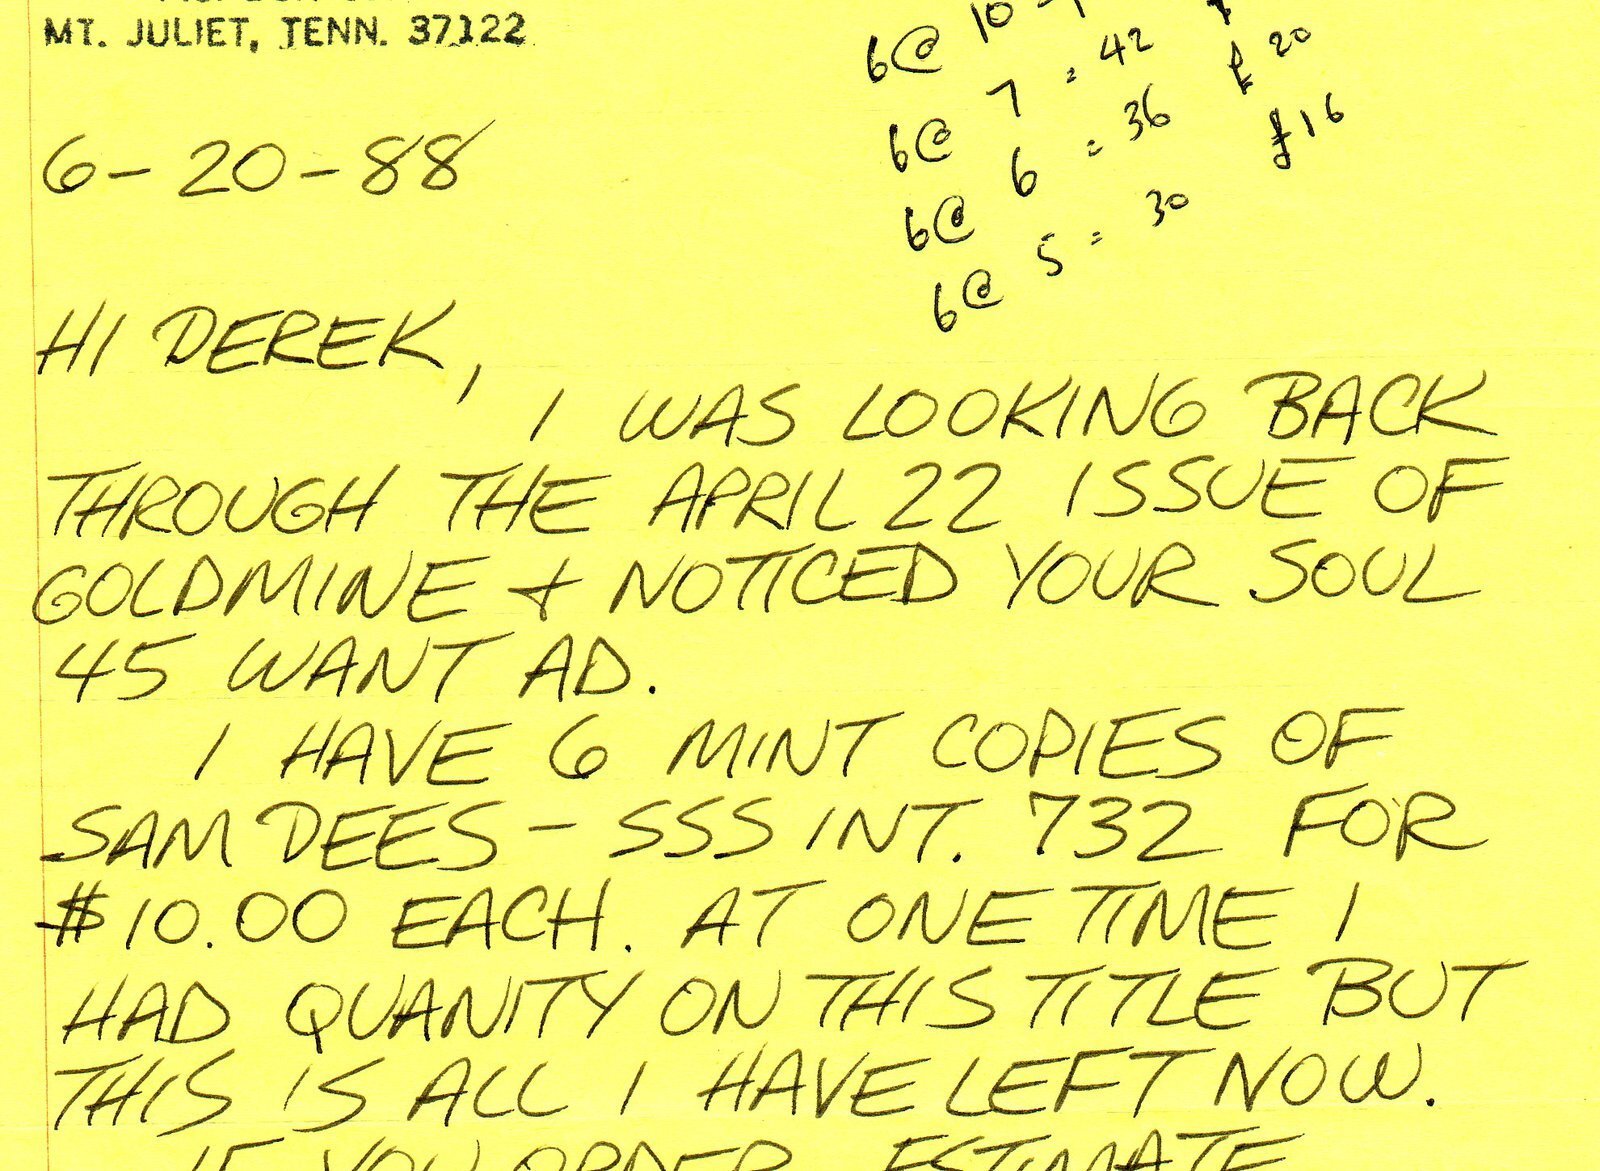 MT. JULIET, TENN. 37122
6@ 10
6@ 7 = 42 £ 20
6@ 6 = 36 £16
6@ 5 = 30
6-20-88
HI DEREK,
I WAS LOOKING BACK
THROUGH THE APRIL 22 ISSUE OF
GOLDMINE + NOTICED YOUR SOUL
45 WANT AD.
I HAVE 6 MINT COPIES OF
SAM DEES - SSS INT. 732 FOR
$10.00 EACH. AT ONE TIME I
HAD QUANITY ON THIS TITLE BUT
THIS IS ALL I HAVE LEFT NOW.
IF YOU ORDER, ESTIMATE